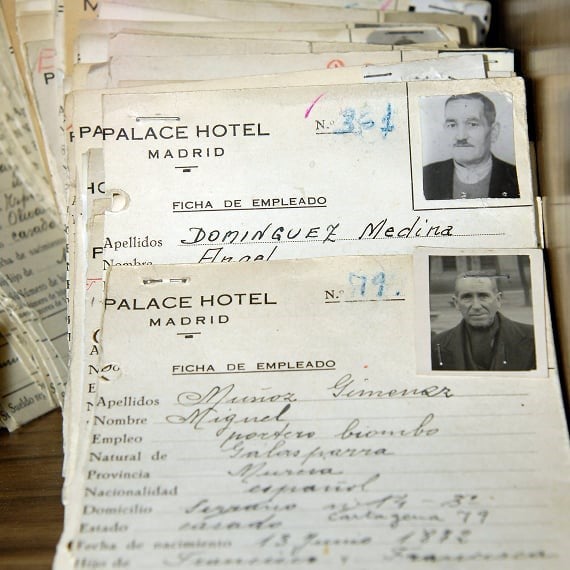 PALACE HOTEL
MADRID
N.º 361
FICHA DE EMPLEADO
Apellidos DOMINGUEZ Medina
Nombre Angel
PALACE HOTEL
MADRID
N.º 79.
FICHA DE EMPLEADO
Apellidos Muñoz Gimenez
Nombre Miguel
Empleo portero biombo
Natural de Galasparra
Provincia Murcia
Nacionalidad español
Domicilio Serrano
Cartagena 79
Estado casado
Fecha de nacimiento 13 Junio 1882
Hijo de Francisco y Francisca